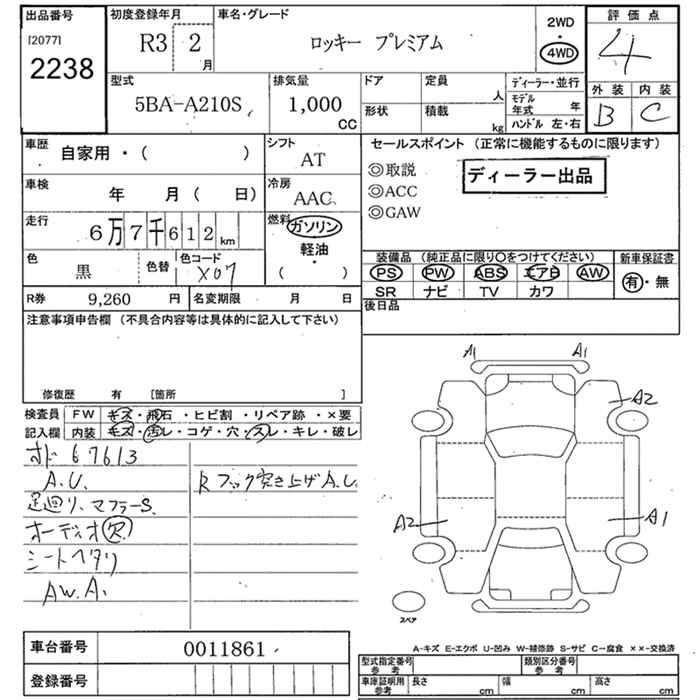 出品番号 初度登録年月 車名・グレード 2WD 評価点
[2077] R3 2 月 ロッキー プレミアム 4WD 4
2238
型式 排気量 ドア 定員 人 ディーラー・並行 外装 内装
5BA-A210S 1,000 CC 形状 積載 kg モデル年式 年 B C
ハンドル 左・右
車歴 自家用・( ) シフト AT セールスポイント (正常に機能するものに限ります)
◎取説 ディーラー出品
車検 年 月 ( 日) 冷房 AAC ◎ACC
◎GAW
走行 6万7千612 km 燃料 ガソリン
軽油・
( )
色 黒 色替 色コード X07
装備品 (純正品に限り○をつけてください) 新車保証書
PS PW ABS エアB AW 有・無
SR ナビ TV カワ
R券 9,260 円 名変期限 月 日 後日品
注意事項申告欄 (不具合内容等は具体的に記入して下さい)
修復歴 有 [箇所 ]
A1 A1
A2
検査員 FW キズ・飛石・ヒビ割・リペア跡・×要
記入欄 内装 キズ・汚レ・コゲ・穴・スレ・キレ・破レ
オド 67613
A.U. Rフック突き上げA.U
足廻り、マフラーS.
オーディオ欠
シートヘタリ
AW.A.
A2 A1
スペア
車台番号 0011861
登録番号
A-キズ E-エクボ U-凹み W-補修跡 S-サビ C-腐食 ××-交換済
型式指定番号 類別区分番号
参考 参考
車庫証明用 長さ 幅 高さ
参考 cm cm cm